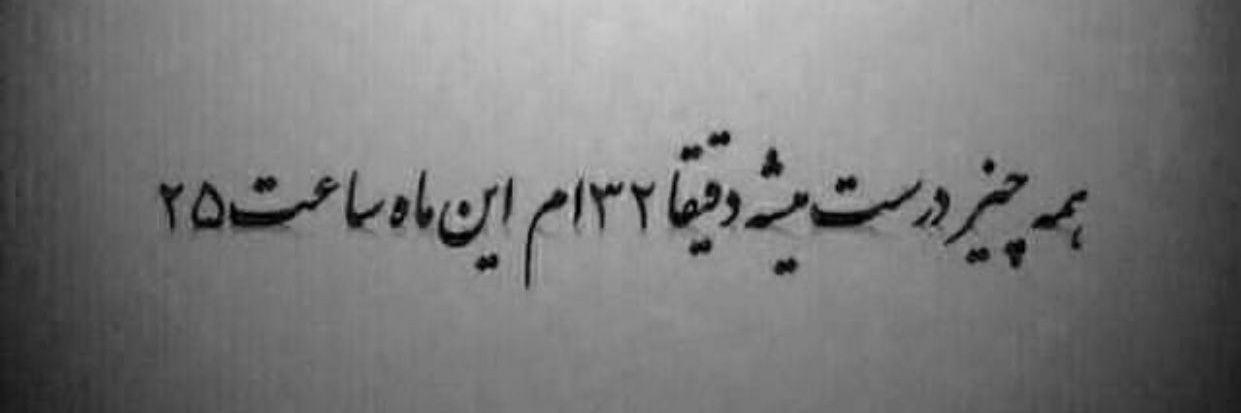 همه چیز درست میشه دقیقا ۳۲ ام این ماه ساعت ۲۵